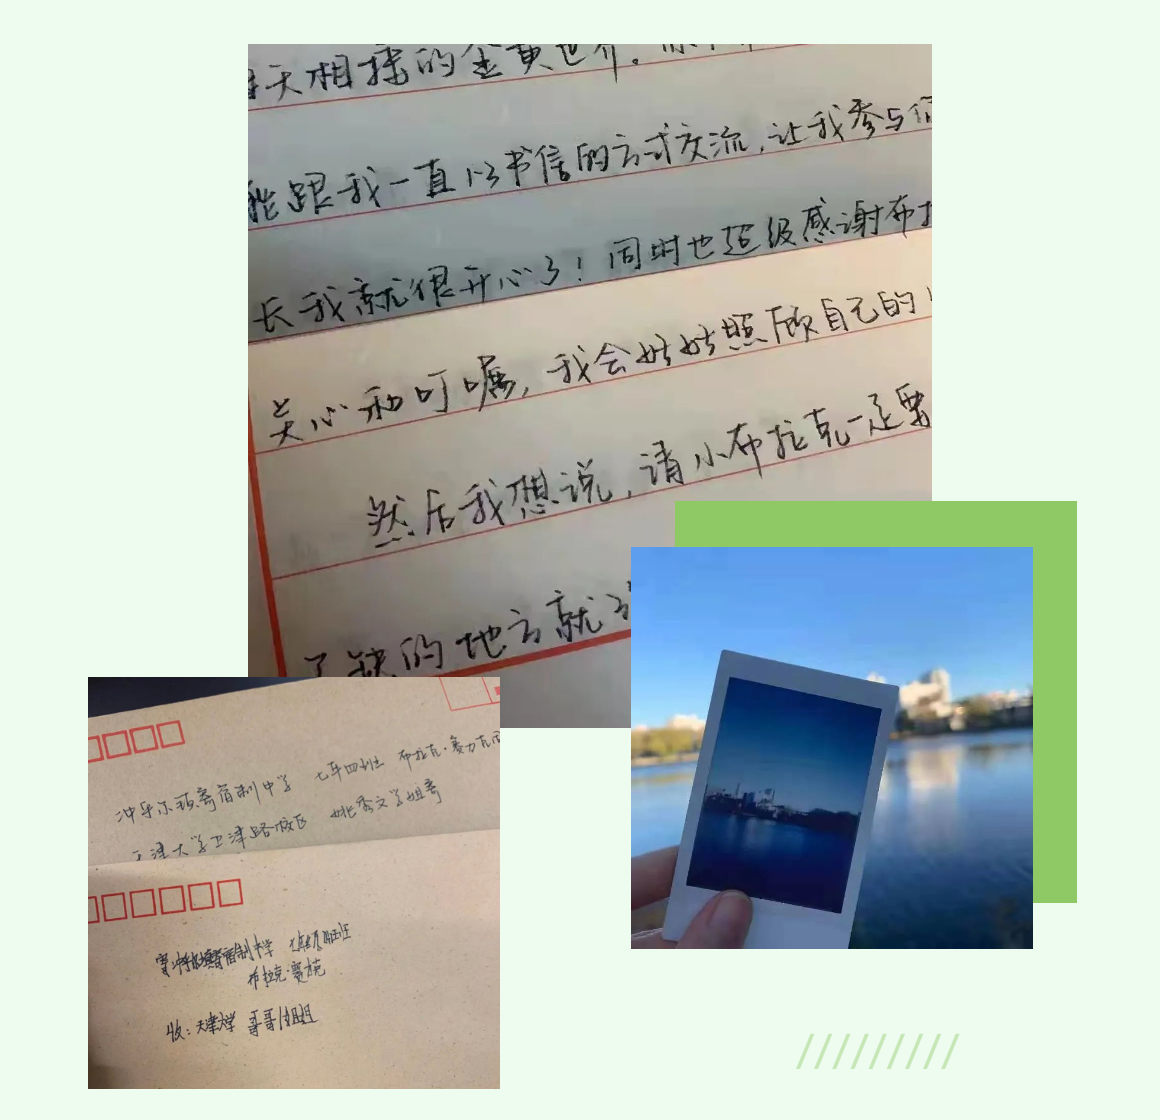 天相接的金黄世界。
能跟我一直以书信的方式交流，让我参与
长我就很开心了！同时也超级感谢布拉
关心和叮嘱，我会好好照顾自己的
然后我想说，请小布拉克一定要
的地方就
冲乎尔项寄宿制中学 七年四班 布拉克·赛力克
天津大学卫津路校区 姚秀文学姐寄
寄宿制中学
布拉克·赛
收：天津大学 哥哥/姐姐